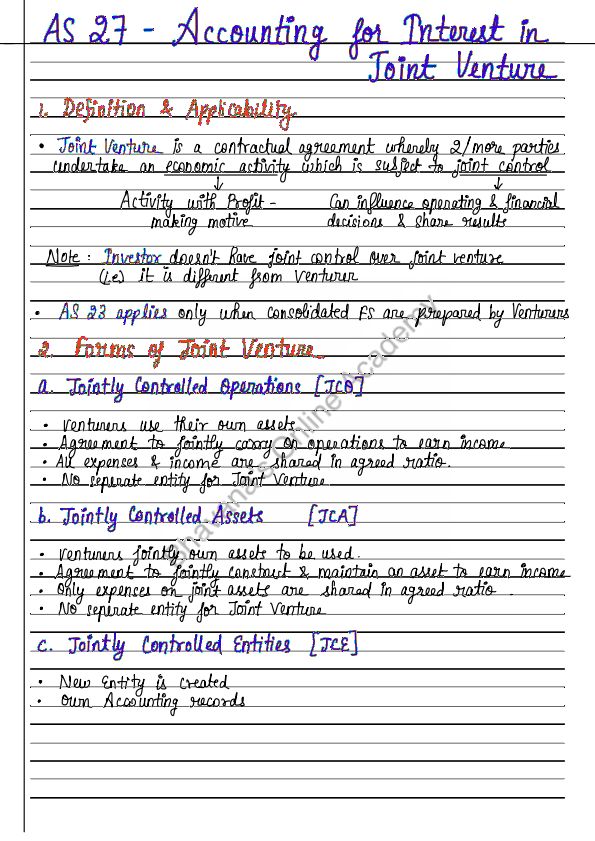 AS 27 - Accounting for Interest in
Joint Venture
1. Definition & Applicability
• Joint Venture is a contractual agreement whereby 2/more parties
undertake an economic activity which is subject to joint control
Activity with Profit - Can influence operating & financial
making motive decisions & share results
Note : Investor doesn't have joint control over joint venture
(i.e) it is different from Venturer
• AS 23 applies only when consolidated FS are prepared by Venturers
2. Forms of Joint Venture
a. Jointly Controlled Operations [JCO]
• Venturers use their own assets
• Agreement to jointly carry on operations to earn income
• All expenses & income are shared in agreed ratio.
• No seperate entity for Joint Venture
b. Jointly Controlled Assets [JCA]
• Venturers jointly own assets to be used.
• Agreement to jointly construct & maintain an asset to earn income
• Only expenses on joint assets are shared in agreed ratio.
• No seperate entity for Joint Venture
c. Jointly Controlled Entities [JCE]
• New Entity is created
• Own Accounting records
Bhavana's Online Academy